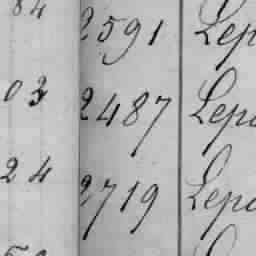 84 2591 Lep
03 2487 Lepo
24 2719 Lepo